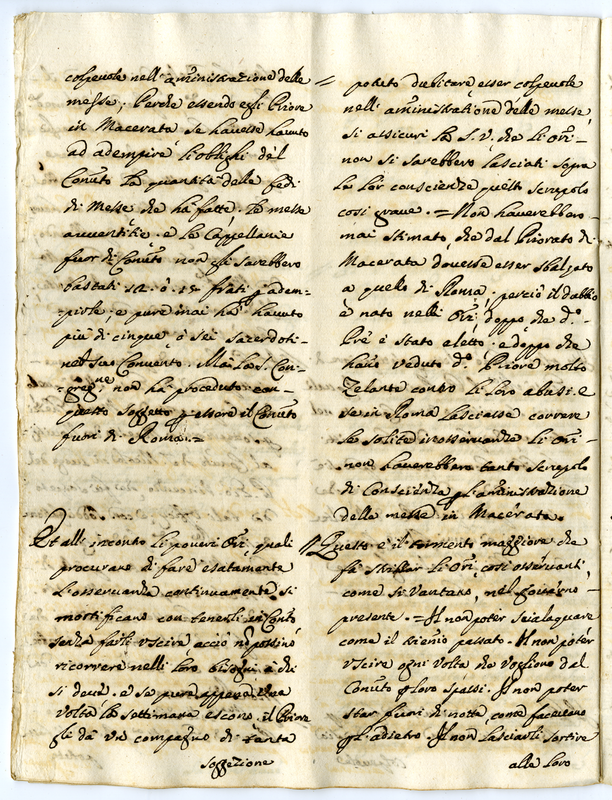 colpevole nell'aministrazione delle
messe; Perche essendo egli Priore
in Macerata se havesse havuto
ad adempire li oblighi del
Conuto la quantità delle fedi
di Messe che hà fatte. le messe
auuentitie. e le Cappellanie
fuor di Conuto non gli sarebbero
bastati 12. ò 15 frati p adem=
pirle; e pure mai hà hauuto
più di cinque ò sei sacerdoti
nel suo Convento. Mà la S. Con=
gregne non hà proceduto con
questo soggetto p essere il Conuto
fuori di Roma.=
Et all'inconto li poueri Ori, quali
procurano di fare esatamente
l'osservanza continuamente si
mortificano con tenerli in Conto
senza farli uscire, acciò nō possino
ricorrere nelli loro bisogni à chi
si deue. e se pure appena una
volta la settimana escono. il Priore
gle dà un compagno di tanta
soggezione
= potuto dubitare esser colpevole
nell'aministratione delle messe,
si assicuri la S. V. che li Ori=
non si sarebbero lasciati sopra
la lor conscienza questo scrupolo
cosi grave. = Non hauerebbero
mai stimato, che dal Priorato di
Macerata douesse esser sbalzato
a quello di Roma; perciò il dubbio
è nato nelli Ori, doppo che do.
Pre è stato eletto. e doppo che
hano veduto do. Priore molto
Zelante contro li loro abusi. e
se in Roma lasciasse correre
le solite inosservanze li Ori=
non hauerebbero tanto scrupolo
di Conscienza p l'aministrazione
delle messe in Macerata.
// Questo è il tormento maggiore che
fà strillar li Ori. cosi osservanti
come si vantano, nel gouerno
presente. = Il non poter scialaquare
come il trienio passato. Il non potér
uscire ogni volta che vogliono dal
Conuto p loro spassi. Il non poter
star fuori di notte, come faceuano
p l'adietro. Il non lasciarli sortire
alle loro